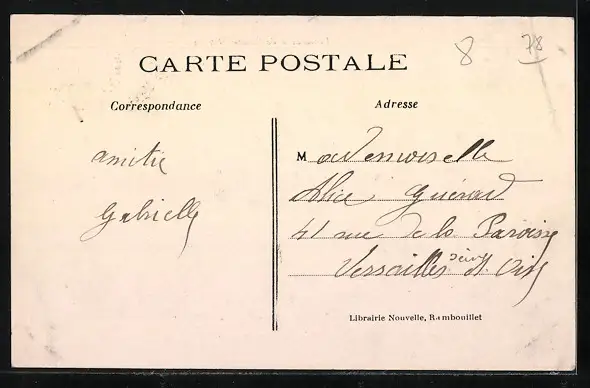 8
78
CARTE POSTALE
Correspondance
Adresse
amitié
Gabrielle
Mademoiselle
Alice Guérard
41 rue de la Paroisse
Versailles Seine et Oise
Librairie Nouvelle, Rambouillet